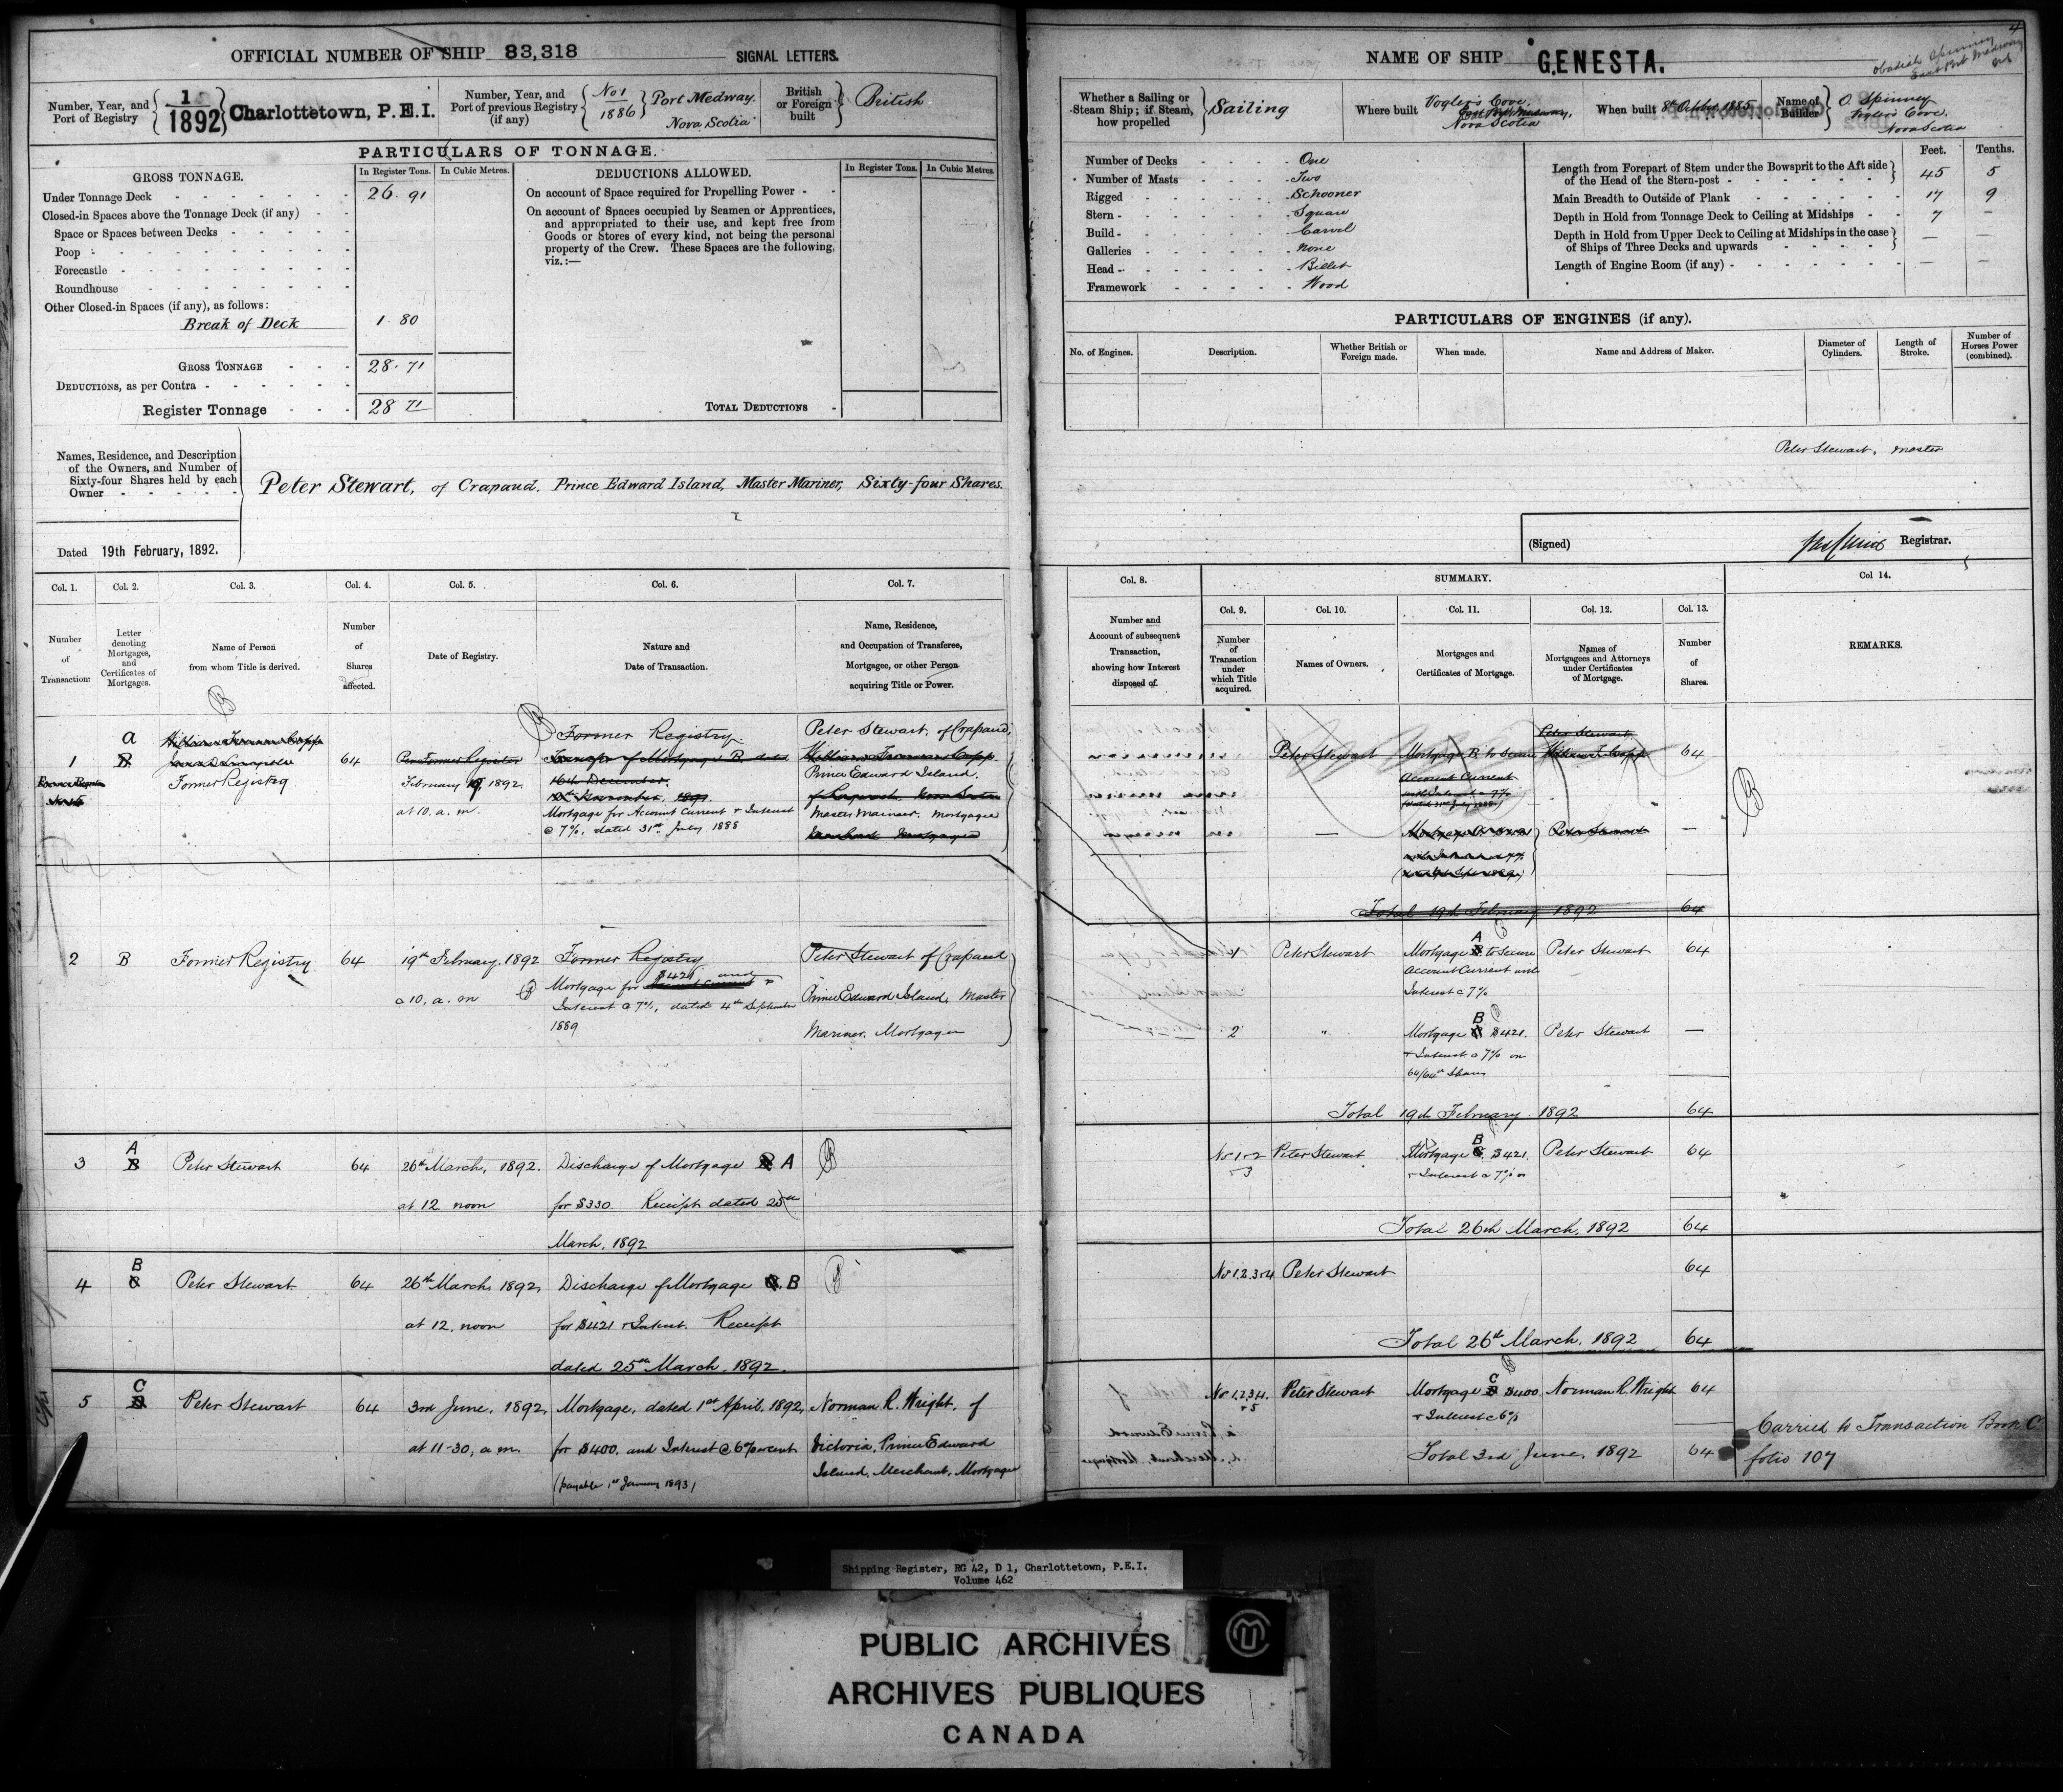 OFFICIAL NUMBER OF SHIP 83,318 SIGNAL LETTERS.
Number, Year, and Port of Registry 1/1892 Charlottetown, P.E.I.
Number, Year, and Port of previous Registry (if any) No 1 1886 Port Medway. Nova Scotia
British or Foreign built British
PARTICULARS OF TONNAGE.
GROSS TONNAGE. In Register Tons. In Cubic Metres.
Under Tonnage Deck 26.91
Closed-in Spaces above the Tonnage Deck (if any)
Space or Spaces between Decks
Poop
Forecastle
Roundhouse
Other Closed-in Spaces (if any), as follows:
Break of Deck 1.80
GROSS TONNAGE 28.71
DEDUCTIONS, as per Contra
Register Tonnage 28 71
DEDUCTIONS ALLOWED. In Register Tons. In Cubic Metres.
On account of Space required for Propelling Power
On account of Spaces occupied by Seamen or Apprentices,
and appropriated to their use, and kept free from
Goods or Stores of every kind, not being the personal
property of the Crew. These Spaces are the following,
viz.:—
TOTAL DEDUCTIONS
Names, Residence, and Description
of the Owners, and Number of
Sixty-four Shares held by each
Owner
Peter Stewart, of Crapaud, Prince Edward Island, Master Mariner, Sixty-four Shares.
Dated 19th February, 1892.
NAME OF SHIP GENESTA.
Obadiah Spinney
East Port Medway
N.S
Whether a Sailing or Steam Ship; if Steam, how propelled Sailing
Where built Vogler's Cove, East Port Medway, Nova Scotia
When built 8th October 1885
Name of Builder O. Spinney Vogler's Cove, Nova Scotia
Number of Decks One
Number of Masts Two
Rigged Schooner
Stern Square
Build Carvel
Galleries None
Head Billet
Framework Wood
Feet. Tenths.
Length from Forepart of Stem under the Bowsprit to the Aft side
of the Head of the Stern-post 45 5
Main Breadth to Outside of Plank 17 9
Depth in Hold from Tonnage Deck to Ceiling at Midships 7 —
Depth in Hold from Upper Deck to Ceiling at Midships in the case
of Ships of Three Decks and upwards — —
Length of Engine Room (if any) — —
PARTICULARS OF ENGINES (if any).
No. of Engines. Description. Whether British or Foreign made. When made. Name and Address of Maker. Diameter of Cylinders. Length of Stroke. Number of Horses Power (combined).
Peter Stewart, Master
(Signed) Registrar.
Col. 1. Col. 2. Col. 3. Col. 4. Col. 5. Col. 6. Col. 7.
Number of Transaction:
Letter denoting Mortgages, and Certificates of Mortgages.
Name of Person from whom Title is derived.
Number of Shares affected.
Date of Registry.
Nature and Date of Transaction.
Name, Residence, and Occupation of Transferee, Mortgagee, or other Person acquiring Title or Power.
Col. 8. SUMMARY. Col 14.
Col. 9. Col. 10. Col. 11. Col. 12. Col. 13.
Number and Account of subsequent Transaction, showing how Interest disposed of.
Number of Transaction under which Title acquired.
Names of Owners.
Mortgages and Certificates of Mortgage.
Names of Mortgagees and Attorneys under Certificates of Mortgage.
Number of Shares.
REMARKS.
1 a B
Former Registry
64
Per Former Register
February 19, 1892
at 10. a. m.
Former Registry
Transfer of Mortgage B dated
16th December
Mortgage for Account Current & Interest
@ 7%, dated 31st July 1888
Peter Stewart, of Crapaud,
William Freeman Copp.
Prince Edward Island,
Master Mariner. Mortgagee
Peter Stewart
Mortgage B to Secure
Account Current
with Interest @ 7%
Peter Stewart
William F. Copp
64
Peter Stewart
Total 19th February 1892 64
2 B Former Registry 64
19th February, 1892
@ 10, a. m
Former Registry
Mortgage for $421 and
Interest @ 7%, dated 4th September
1889
Peter Stewart of Crapaud
Prince Edward Island, Master
Mariner. Mortgagee
1 Peter Stewart
Mortgage A to Secure
Account Current with
Interest @ 7%
Peter Stewart 64
2 "
Mortgage B $421.
& Interest @ 7% on
64/64th Shares
Peter Stewart —
Total 19th February 1892 64
3 A B Peter Stewart 64
26th March, 1892.
at 12 noon
Discharge of Mortgage B A
for $330 Receipt dated 25th
March, 1892
No 1 & 2 & 3 Peter Stewart
Mortgage B $421.
& Interest @ 7% on
Peter Stewart 64
Total 26th March, 1892 64
4 B Peter Stewart. 64
26th March, 1892,
at 12, noon
Discharge of Mortgage B
for $421 & Interest. Receipt
dated 25th March, 1892.
No 1.2.3 & 4 Peter Stewart 64
Total 26th March, 1892 64
5 C Peter Stewart 64
3rd June, 1892,
at 11-30, a. m.
Mortgage, dated 1st April, 1892,
for $400. and Interest @ 6% per cent
(payable 1st January 1893)
Norman R. Wright, of
Victoria, Prince Edward
Island, Merchant, Mortgagee
No 1.2.3.4. & 5 Peter Stewart
Mortgage C $400
& Interest @ 6%
Norman R. Wright 64
Total 3rd June, 1892 64
Carried to Transaction Book C
folio 107
Shipping Register, RG 42, D 1, Charlottetown, P.E.I.
Volume 462
PUBLIC ARCHIVES
ARCHIVES PUBLIQUES
CANADA